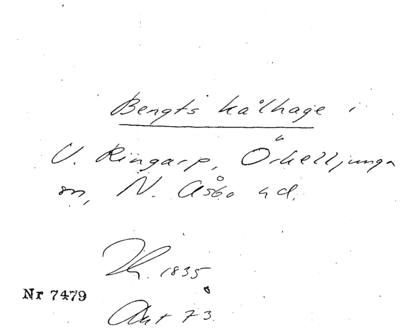 Bengts kålhage i
V. Ringarp, Örkelljunga
sn, N. Åsbo hd.
Lh. 1835
Nr 7479
Akt 73